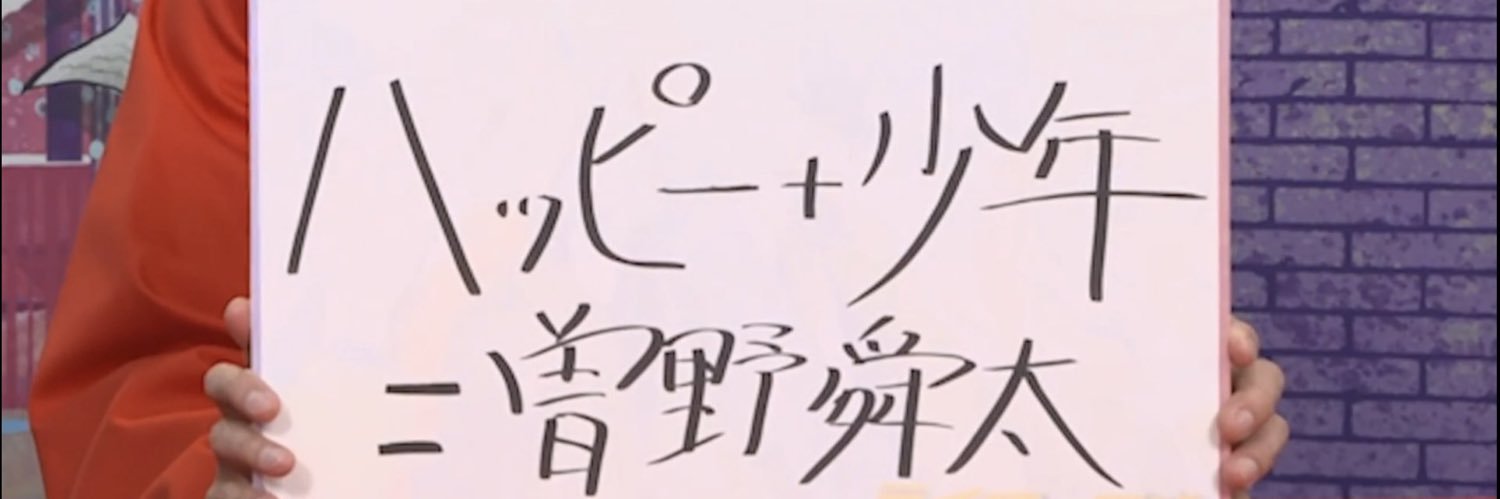 ハッピー+少年
=曽野舜太